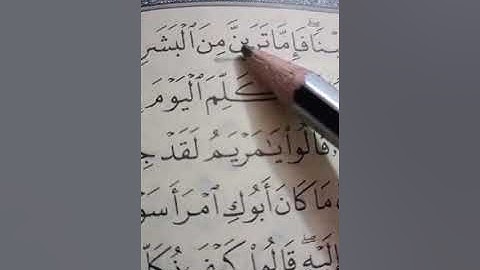 فَإِمَّا تَرَيِنَّ مِنَ ٱلۡبَشَرِ
كَلِّمَ ٱلۡيَوۡمَ
قَالُواْ يَٰمَرۡيَمُ لَقَدۡ جِ
مَا كَانَ أَبُوكِ ٱمۡرَأَ سَوۡ
إِلَيۡهِۖ قَالُواْ كَيۡفَ نُكَلِّ